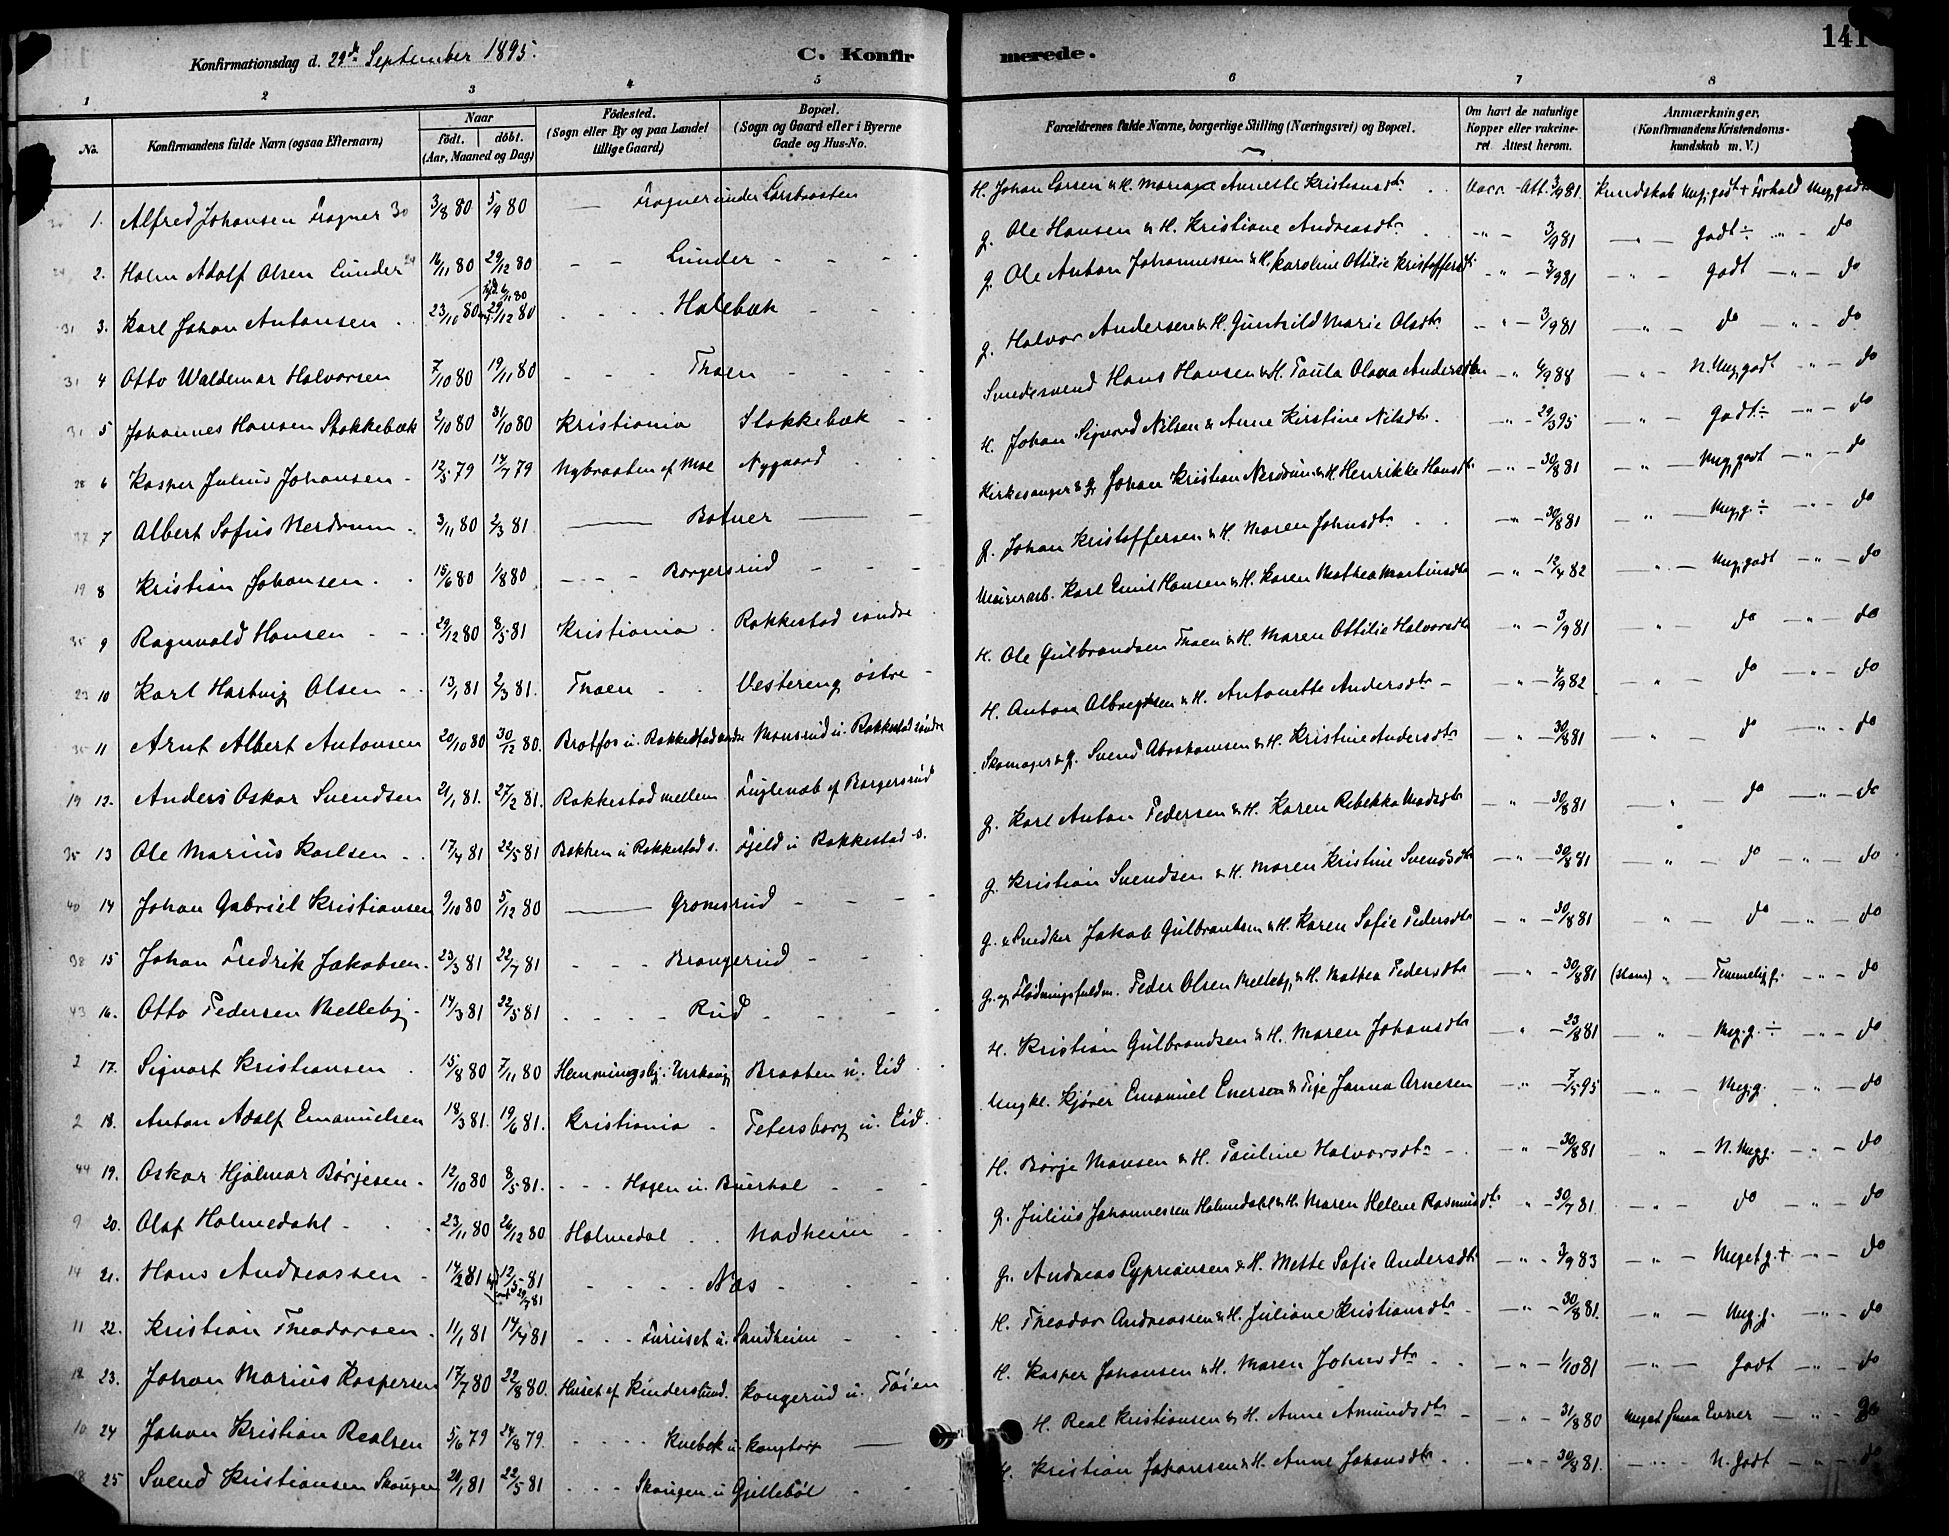 141
Konfirmationsdag d. 29de September 1895.
C. Konfirmerede.
1 2 3 4 5 6 7 8
No. Konfirmandens fulde Navn (ogsaa Efternavn) Naar födt. döbt. (Aar, Maaned og Dag) Födested. (Sogn eller By og paa Landet tillige Gaard) Bopæl. (Sogn og Gaard eller i Byerne Gade og Hus-No. Forældrenes fulde Navne, borgerlige Stilling (Næringsvei) og Bopæl. Om havt de naturlige Kopper eller vakcineret. Attest herom. Anmærkninger. (Konfirmandens Kristendomskundskab m. V.)
1. Alfred Johansen Fragner 30 3/8 80 5/9 80 — Fragner under Larsbraaten H. Johan Larsen & H. Mariane Annette Kristiansdtr Vacc. Att. 3/9 81 Kundskab Meg. godt + Forhold Meg. godt
2. Holm Adolf Olsen Lunder 24 16/11 80 29/12 80 Lunder g. Ole Hansen & H. Kristiane Andreasdtr 3/9 81 godt ÷ do
3. Karl Johan Antonsen 23/10 80 29/12 80 Holebæk g. Ole Anton Johannessen & H. Karoline Ottilie Kristoffersdtr 3/9 81 godt do
4 Otto Waldemar Halvorsen 7/10 80 19/11 80 Thoen g. Halvor Andersen & H. Gunhild Marie Olsdtr 3/9 81 do do
5 Johannes Hansen Stokkebæk 2/10 80 31/10 80 Kristiania Stokkebæk Smedesvend Hans Hansen & H. Paula Olava Andersdtr 4/9 84 N. Meg godt do
6 Kasper Julius Johansen 12/5 79 14/7 79 Nybraaten af Moe Nygaard H. Johan Sigvard Nilsen & Anne Kirstine Nilsdtr 29/3 95 godt ÷ do
7 Albert Sofus Nerdrum 3/11 80 2/3 81 Botner Kirkesanger & g. Johan Kristian Nerdrum & H. Henrikke Hansdtr 30/8 81 Meg. godt do
8 Kristian Johansen 15/6 80 1/8 80 Borgersrud g. Johan Kristoffersen & H. Maren Johnsdtr 30/8 81 Meg. g. ÷ do
9 Ragnvald Hansen 29/12 80 8/5 81 Kristiania Rakkestad søndre Murerarb. Karl Emil Hansen & H. Karen Mathea Martinsdtr 12/4 82 Meg. godt do
10 Karl Hartvig Olsen 13/1 81 2/3 81 Thoen Vestereng østre H. Ole Gulbrandsen Thoen & H. Maren Ottilie Halvorsdtr 3/9 81 do do
11 Arnt Albert Antonsen 20/10 80 30/12 80 Bratfos u. Rakkestad søndre Monsrud u. Rakkestad søndre H. Anton Albregtsen & H. Antonette Andersdtr 4/9 82 do do
12. Anders Oskar Svendsen 21/1 81 27/2 81 Rakkestad mellem Fuglenæb af Borgersrud Skomager & g. Svend Abrahamsen & H. Kristine Andersdtr 30/8 81 do do
13 Ole Marius Karlsen 17/4 81 22/5 81 Bakken u. Rakkestad s. Fjeld u. Rakkestad s. g. Karl Anton Pedersen & H. Karen Rebekka Madsdtr 30/8 81 do do
14 Johan Gabriel Kristiansen 9/10 80 5/12 80 Gromsrud g. Kristian Svendsen & H. Maren Kristine Svendsdtr 30/8 81 do do
15 Johan Fredrik Jakobsen 23/3 81 22/7 81 Brangerud g. & Snedker Jakob Gulbrantsen & H. Karen Sofie Pedersdtr 30/8 81 do do
16. Otto Pedersen Melleby 14/3 81 22/5 81 Rud g. og Flødningsfuldm. Peder Olsen Melleby & H. Mathea Pedersdtr 30/8 81 Temmelig g. do
17. Sigvart Kristiansen 15/8 80 7/11 80 Hemmingsby Urskoug Braaten u. Eid H. Kristian Gulbrandsen & H. Maren Johansdtr 23/8 81 Meg. g. ÷ do
18. Anton Adolf Emanuelsen 18/3 81 19/6 81 Kristiania Petersborg u. Eid Ungkl. Kjører Emanuel Enersen & Pige Janna Arnesen 7/5 95 Meg. g. do
19. Oskar Hjalmar Børjesen 12/10 80 8/5 81 Hagen u. Buerhol H. Børje Monsen & H. Pauline Halvorsdtr 30/8 81 N. Meg g. do
20. Olaf Holmedahl 23/11 80 26/12 80 Holmedal Nodheim g. Julius Johannessen Holmedahl & H. Maren Helene Rasmusdtr 30/7 81 do do
21. Hans Andreassen 14/2 81 12/5 81 Næs g. Andreas Cypriansen & H. Mette Sofie Andersdtr 3/9 83 Meget g. + do
22. Kristian Theodorsen 11/1 81 14/4 81 Furuset u. Sandheim H. Theodor Andreassen & H. Juliane Kristiansdtr 30/8 81 Meg. g. do
23. Johan Marius Kaspersen 17/7 80 22/8 80 Huset af Kinderslund Kongerud u. Tøien H. Kasper Johansen & H. Maren Johnsdtr 1/10 81 godt do
24 Johan Kristian Realsen 5/6 79 24/8 79 Knebøk u. Kongtorp H. Real Kristiansen & H. Anne Amundsdtr 31/8 80 Meget smaa Evner do
25 Svend Kristiansen Skougen 20/1 81 22/5 81 Skougen u. Gjellebøl H. Kristian Johansen & H. Anne Johansdtr 30/8 81 N. godt do